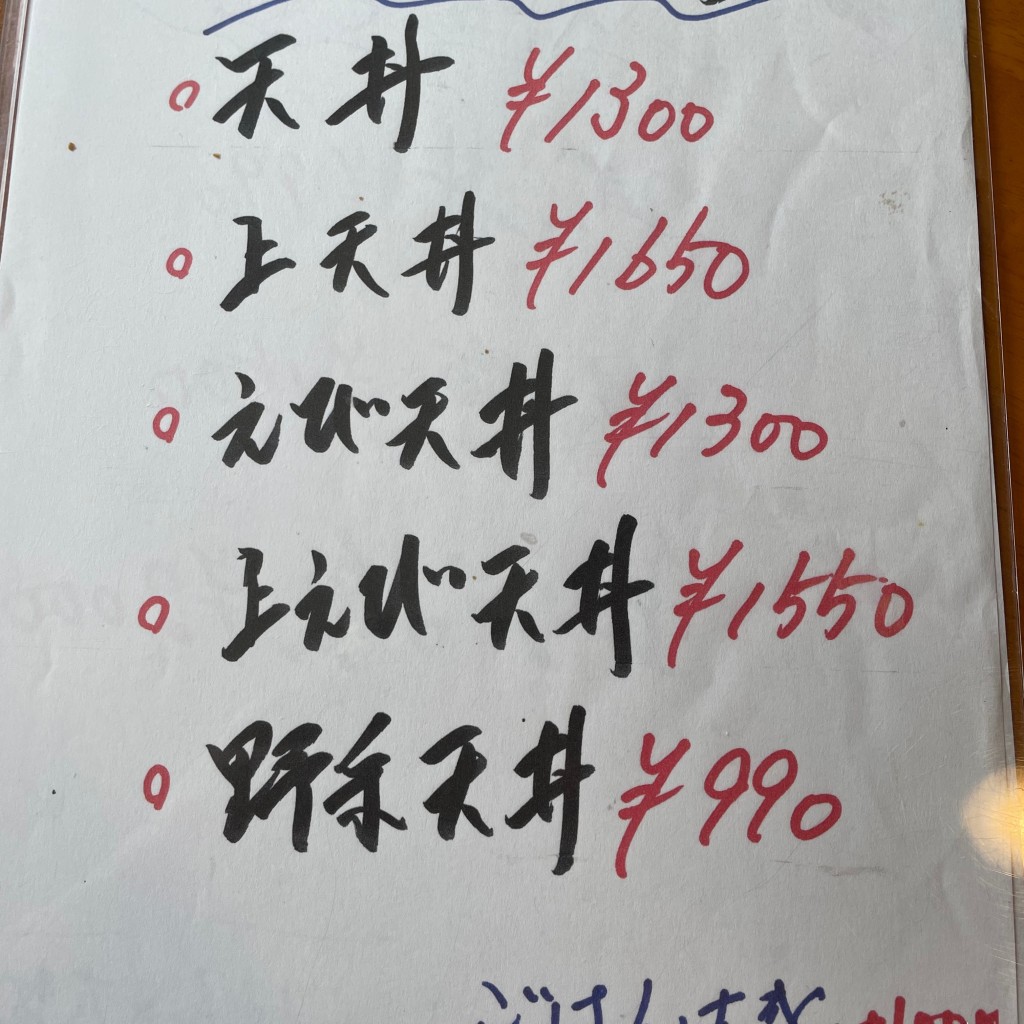 天丼 ¥1300
上天丼 ¥1650
えび天丼 ¥1300
上えび天丼 ¥1550
野菜天丼 ¥990
ごはん大盛